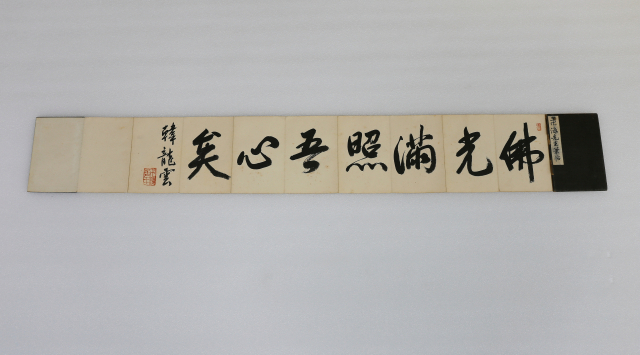 佛光滿照吾心矣
韓龍雲